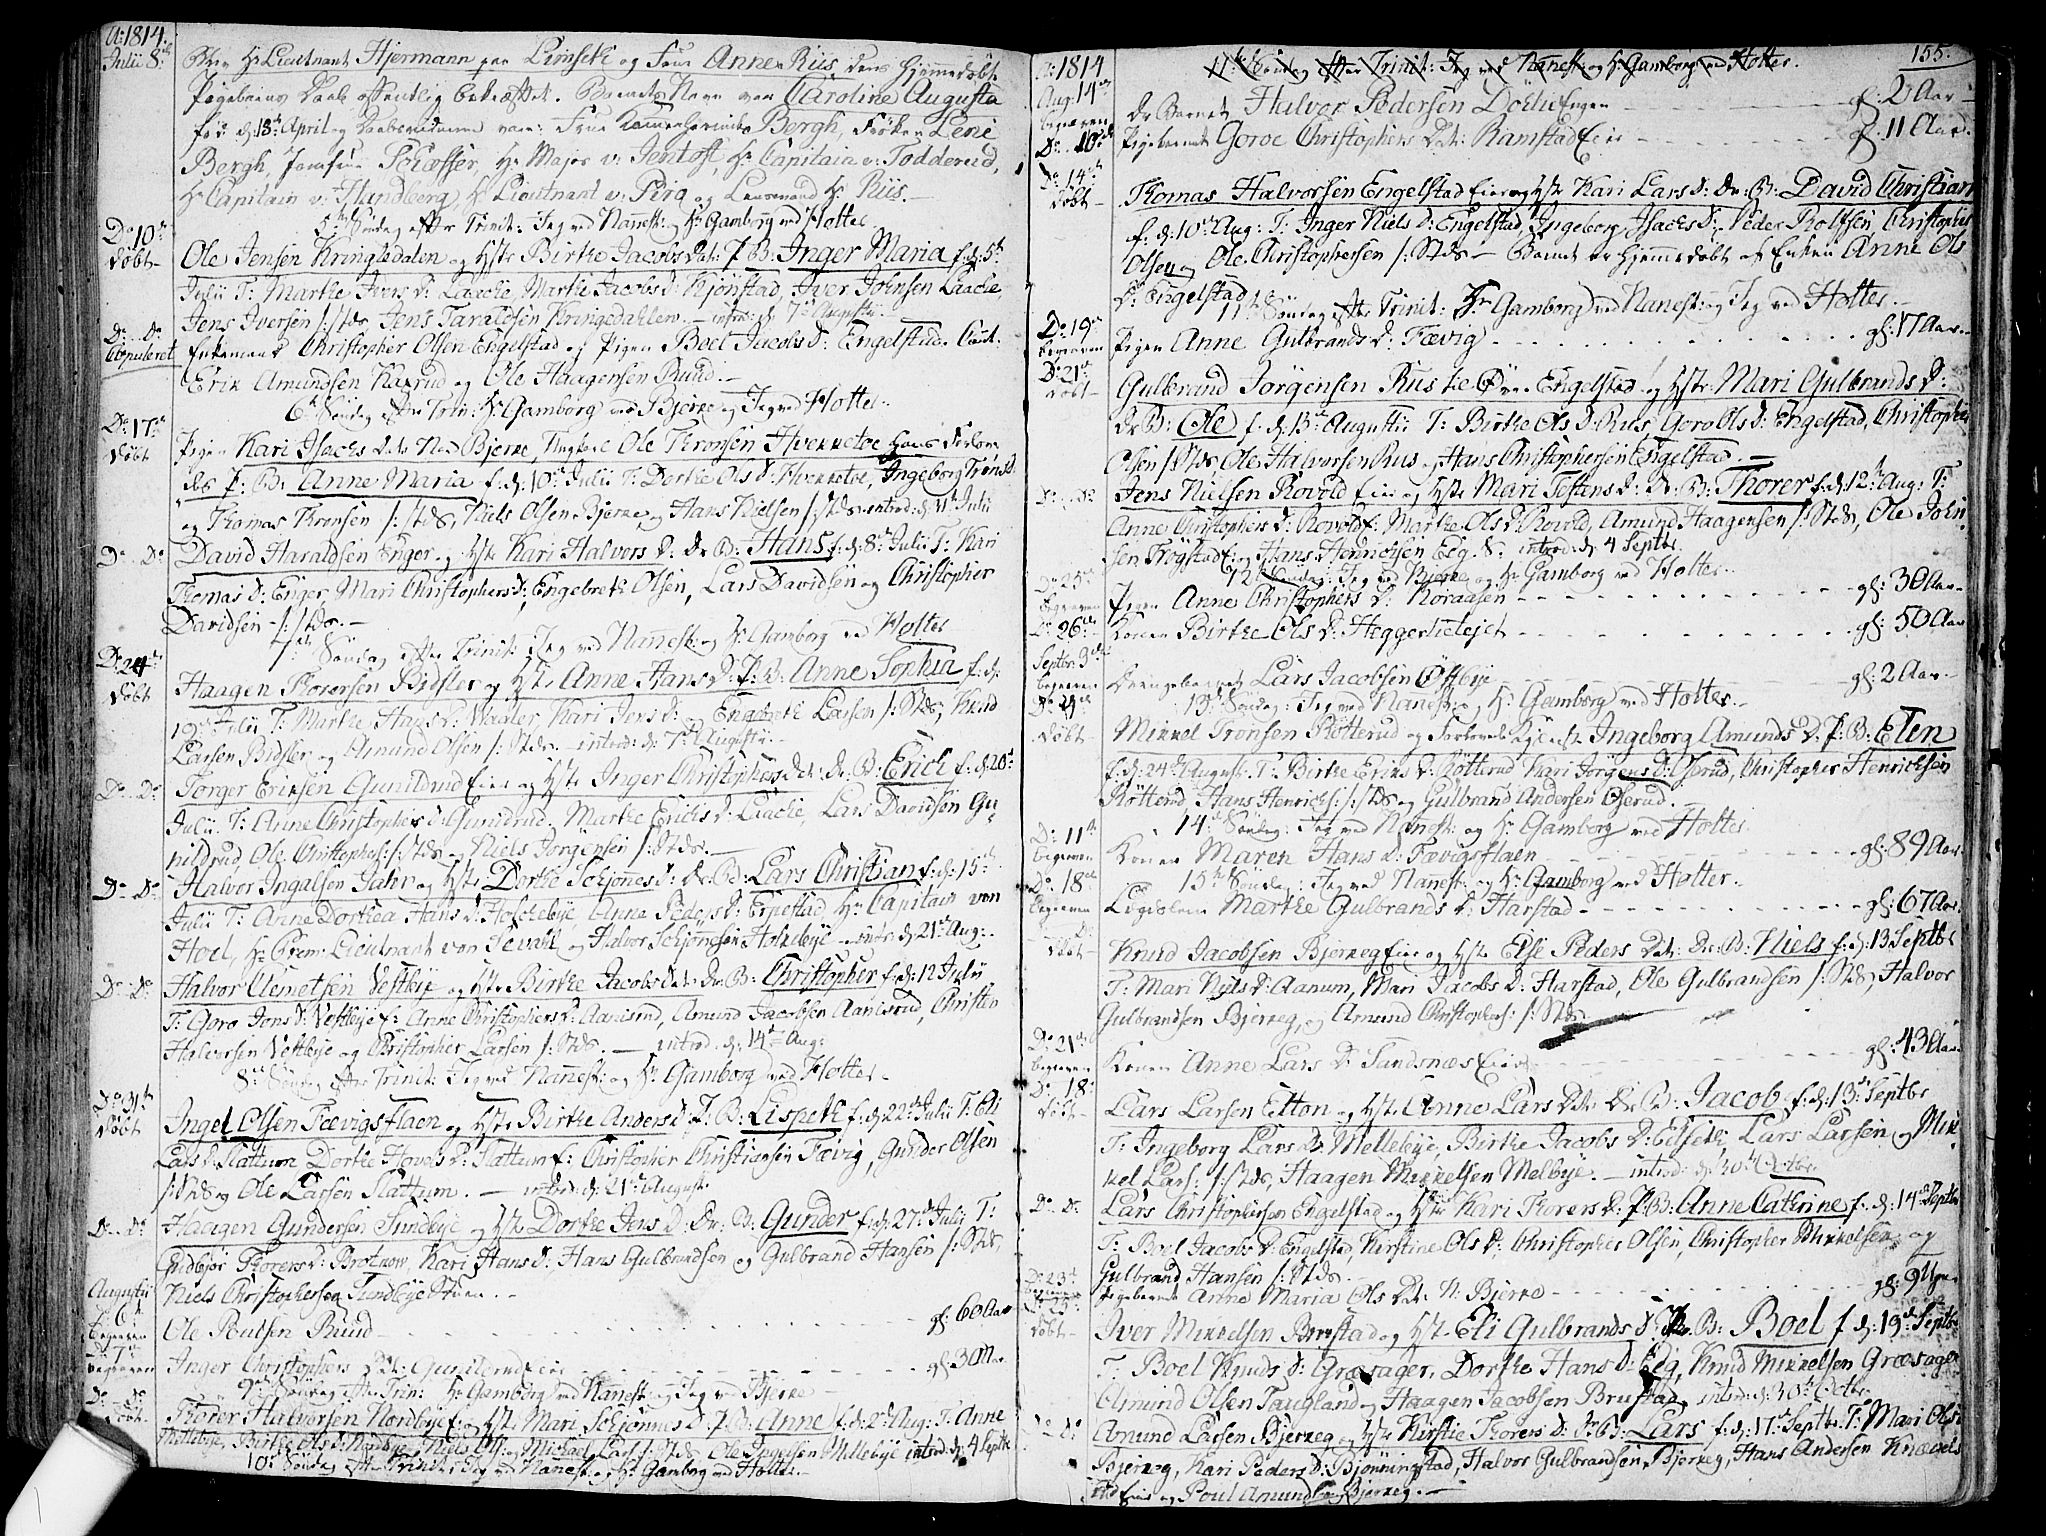 A: 1814.
Julii 8de
Blev Hr Lieutnant Hjermann paa Linseth og Frue Anne Riis deres hjemmedøbte
Pigebarns Daab offentlig bekræftet. Barnets Navn var Caroline Augusta
fød d: 18de April og Daabsvidnerne vare: Frue Kammerherinde Bergh, Frøken Lene
Bergh, Jomfru Schæffer, Hr Major v: Jentoft, Hr Capitain v: Todderud,
Hr Capitain v: Handberg, Hr Lieutnant v: Pirg og Lensmand Hr Riis.
5te Søndag efter Trinit: Jeg ved Nannest: Hr Gamborg ved Holter
Do 10de
døbt
Ole Jensen Kringledalen og Hstr Birthe Jacobs Dat: P: B: Inger Maria f: d: 5te
Julii T: Marthe Ivers D: Laache, Marthe Jacobs D: Kjönstad, Iver Johnsen Laache,
Jens Iversen /:Stds Jens Taraldsen Kringledahlen. introd: d: 7de Augusti.
Do Do
Copuleret
Enkemand Christopher Olsen Engelstad og Pigen Boel Jacobs D: Engelstad. Caut:
Erik Amundsen Kaxrud og Ole Haagensen Ruud.
6te Søndag efter Trin: Hr Gamborg ved Bjerke og Jeg ved Holter.
Do 17de
døbt
Pigen Kari Isachs Dat: Ned Bjerke, Ungkarl Ole Thronsen Hvenneteie hans Forlov
des P: B: Anne Maria f: d: 10de Julii T: Dorthe Ols D: Hvenneteie, Ingeborg Trons D:
og Thomas Thronsen /:Stds, Niels Olsen Bjerke og Hans Nielsen /:Stds introd: d: 31te Julii
Do Do
David Haraldsen Enger og Hstr Kari Halvors D: Dr: B: Hans f: d: 8de Julii T: Kari
Thomas D: Enger Mari Christophers D: Engebreth Olsen, Lars Davidsen og Christopher
Davidsen /:Stds.
7de Søndag efter Trinit: Jeg ved Nannest: og Hr Gamborg ved Holter
Do 24de
døbt
Haagen Thorersen Bidsler og Hstr Anne Hans D: P: B: Anne Sophia f: d:
19de Julii T: Marthe Hans D: Waaler, Kari Jens D: og Engebreth Larsen /:Stds, Knud
Larsen Bidsler og Amund Olsen /:Stds. introd: d: 7de Augusti.
Do Do
Torger Eriksen Gunildrud Eier og Hstr Inger Christophers Dat: Dr: B: Erich f: d: 20de
Julii. T: Anne Christophers D: Gunildrud. Marthe Erichs D: Laache, Lars Davidsen Gu-
nildrud Ole Christophers: /:Stds og Niels Jørgensen /:Stds.
Do Do
Halvor Ingalsen Jahr og Hstr Dorthe Schjønes D: Dr: B: Lars Christian f: d: 15de
Julii T: Anne Dorthea Hans D: Holchebye, Anne Peders D: Erpestad, Hr Capitain von
Hoel, Hr Prem: Lieutnant von Sevald og Halvor Schjønnesen Holchebye. intr: d: 21de Aug:
Do Do
Halvor Clemetsen Vestbye og Hstr Birthe Jacobs Dat: Dr: B: Christopher f: d: 12 Julii
T: Goro Jons D: Vestbyeje: Anne Christophers D: Aamisrud, Amund Jacobsen Aamisrud, Christen
Halvorsen Vestbye og Christopher Larsen /:Stds. introd: d: 14de Aug:
8de Søndag efter Trinit: Jeg ved Nannest: og Hr Gamborg ved Holter
Do 31te
døbt
Ingel Olsen Fævigsflaen og Hstr Birthe Anders D: P: B: Lispeth f: d: 22de Julii T: Eli
Lars D: Slattum Dorthe Hovels D: Slattum f: Christopher Christiansen Fævig, Gunder Olsen
/:Stds og Ole Larsen Slattum. introd: d: 21de August:
Do Do
Haagen Gundersen Sundbye og Hstr Dorthe Jens D: Dr: B: Gunder f: d: 27de Julii T:
Gudbjør Thorers D: Brotnow, Kari Hans D: Hans Gulbrandsen og Gulbrand Hansen /:Stds,
Niels Christophersen Sundbye Stuen.
Augustii
d: 6te
begraven
Ole Poulsen Ruud gl: 60 Aar
7de
begraven
Inger Christophers Dat: Gunildrud Eier gl: 30 Aar
9de Søndag efter Trin: Hr Gamborg ved Nannest: og Jeg ved Bjerke
Do Do
døbt
Thorer Halvorsen Nordbye f: og Hstr Mari Schjönnes D: P: B: Anne f: d: 2de Aug: T: Anne
Millebye, Birthe Ols D: Nordbye, Niels Ols: og Michael Lars: /:Stds Ole Ingelsen Millebye introd: d: 4 Septbr
10de Søndag efter Trinit: Jeg ved Nannest: og Hr Gamborg ved Holter
155.
A: 1814
11te Søndag efter Trinit: Jeg ved Nannest: og Hr Gamborg ved Holter.
Aug: 14de
begraven
Dr Barnet Halvor Pedersen Dochs Engen gl: 2 Aar
Do 10de
Pigebarnet Goroe Christophers Dat: Ramstad Eier gl: 11 Aar
Do 14de
døbt
Thomas Halvorsen Engelstad Eier og Hstr Kari Lars D: Dr: B: David Christian
f: d: 10de Aug: T: Inger Niels D: Engelstad, Ingeborg Isachs D: Peder Rolfsen, Christopher
Olsen og Ole Christophersen /:Stds. Barnet er hjemmedøbt af Enken Anne Ols
D: Engelstad
11te Søndag efter Trinit: Hr Gamborg ved Nanest: og Jeg ved Holter.
Do 19de
begraven
Pigen Anne Gulbrands D: Fævig gl: 17 Aar
Do 21de
døbt
Gulbrand Jørgensen Rustke Øvre Engelstad og Hstr: Mari Gulbrands D:
Dr B: Ole f: d: 13de Augustii T: Birthe Ols D: Rus Goro Ols D: Engelstad, Christopher
Olsen /:Stds, Ole Halvorsen Rus og Hans Christophersen Engelstad.
Do Do
Jens Nielsen Rovold Eier og Hstr Mari Tostens D: Dr: B: Thorer f: d: 12te Aug: T:
Anne Christophers D: Rovold f: Marthe Ols D: Rovold, Amund Haagensen /:Stds, Ole John-
sen Trogstad E: og Hans Henrichsen Eeg S. introd: d: 4 Septbr.
12te Søndag: Jeg ved Bjerke og Hr Gamborg ved Holter.
Do 25de
begraven
Pigen Anne Christophers D: Koraasen gl: 30 Aar
Do 26de
Konen Birthe Ols D: Heggertieiet gl: 50 Aar
Septbr: 3de
begraven
Drengebarnet Lars Jacobsen Østbye gl: 2 Aar
13de Søndag: Jeg ved Nanest: og Hr Gamborg ved Holter.
Do 4de
døbt
Mikkel Tronsen Røtterud og Forlovede Pige Ingeborg Amunds D: P: B: Elen
f: d: 24de August. T: Birthe Eriks D: Røtterud Kari Jørgens D: Oserud, Christopher Henrichsen
Røtterud, Hans Henrichs: /:Stds og Gulbrand Andersen Oserud.
14de Søndag: Jeg ved Nannest: og Hr Gamborg ved Holter
Do 11te
begraven
Konen Maren Hans D: Fævigsflaen gl: 89 Aar
15de Søndag: Jeg ved Nannest: og Hr Gamborg ved Holter.
Do 18de
begraven
Marthe Gulbrands D: Harstad gl: 67 Aar
D:
døbt
Knud Jacobsen Bjerkeg Eier og Hstr Else Peders Dat: Dr: B: Niels f: d: 13 Septbr
T: Mari Niels D: Aanum, Mari Jacobs D: Harstad, Ole Gulbrandsen /:Stds, Halvor
Gulbrandsen Bjerkeg, og Amund Christophers: /:Stds
Do 21de
begraven
Konen Anne Lars D: Sandsnæs Eier gl: 43 Aar
Do 18:
døbt
Lars Larsen Etton og Hstr Anne Lars Dat: Dr: B: Jacob f: d: 13de Septbr
T: Ingeborg Lars D: Mellebye, Birthe Jacobs D: Edseth, Lars Larsen og Mik-
kel Lars: /:Stds, Haagen Mikkelsen Melbye. introd: d: 30te Octbr
Do Do
Lars Christophersen Engelstad og Hstr Kari Thorers D: P: B: Anne Cathrine f: d: 14de Septbr
T: Boel Jacobs D: Engelstad, Kirstine Ols D: Christopher Olsen, Christopher Mikkelsen og
Gulbrand Hansen /:Stds.
Do 23de
begraven
Pigebarnet Anne Maria Ols Dat: N. Bjerke gl: 9 Uger
Do 25
døbt
Iver Mikkelsen Brustad og Hstr Eli Gulbrands D: P: B: Boel f: d: 19de Septbr
T: Boel Knuds D: Græsager, Dorthe Hans D: Eeg, Knud Mikkelsen Græsager
Amund Olsen Taugland og Haagen Jacobsen Brustad, introd: d: 30te Octbr
Do Do
Amund Larsen Bjerkeg og Hstr Kirstie Thorers D: Dr: B: Lars f: d: 17de Septbr T: Mari Ols D:
Bjerkeg, Kari Peders D: Bjønningstad, Halvor Gulbrandsen Bjerkeg, Hans Andersen Knæpels
rud Eier og Poul Amunds: Bjerkeg.